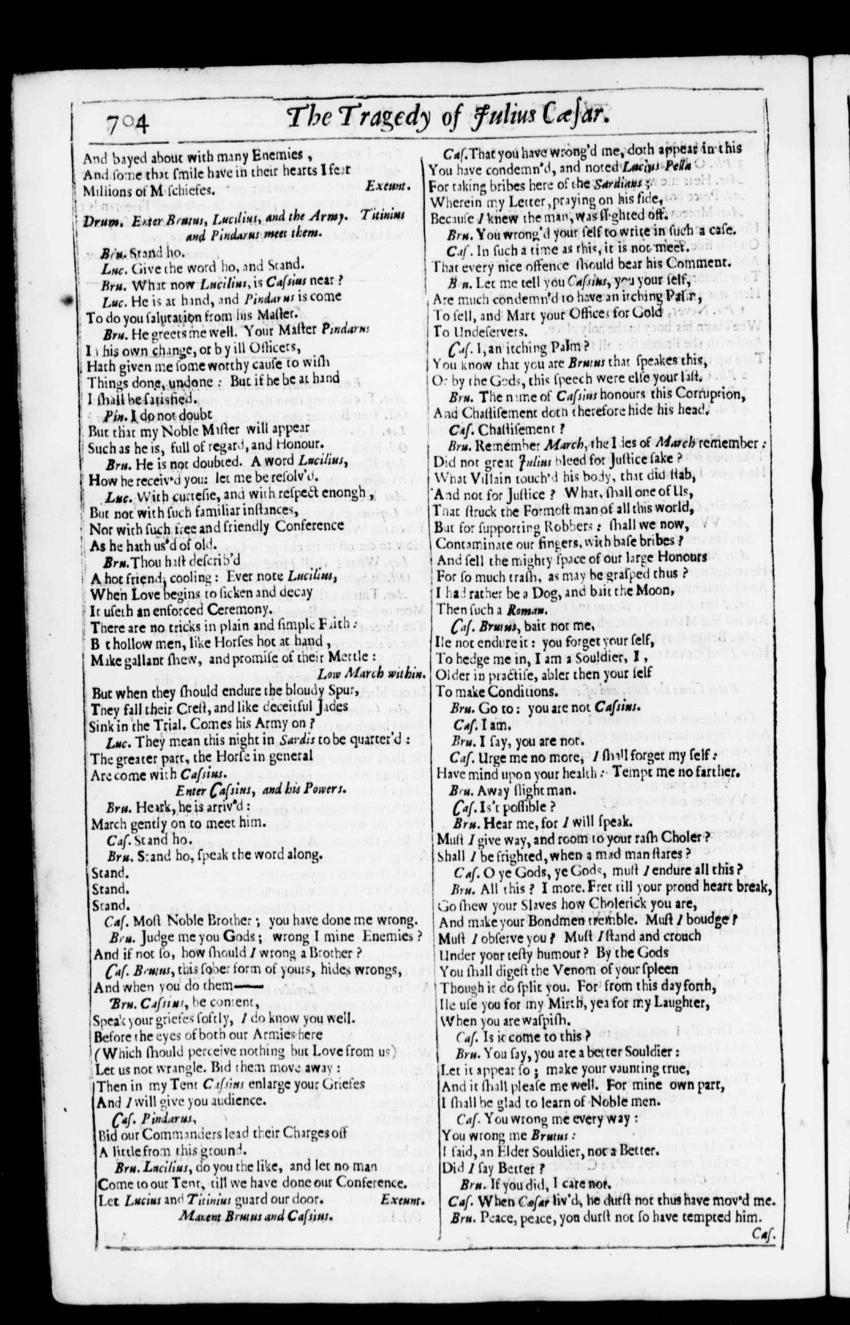 704
The Tragedy of Julius Cæſar.
And bayed about with many Enemies,
And ſome that ſmile have in their hearts I fear
Millions of M ſchiefes. Exeunt.
Drum. Enter Brutus, Lucilius, and the Army. Titinius
and Pindarus meet them.
Bru. Stand ho.
Luc. Give the word ho, and Stand.
Bru. What now Lucilius, is Caſſius near?
Luc. He is at hand, and Pindarus is come
To do you ſalutation from his Maſter.
Bru. He greets me well. Your Maſter Pindarus
In his own change, or by ill Officers,
Hath given me ſome worthy cauſe to wiſh
Things done, undone: But if he be at hand
I ſhall be ſatisfied.
Pin. I do not doubt
But that my Noble Maſter will appear
Such as he is, full of regard, and Honour.
Bru. He is not doubted. A word Lucilius,
How he receiv'd you: let me be reſolv'd.
Luc. With curteſie, and with reſpect enongh,
But not with ſuch familiar inſtances,
Nor with ſuch free and friendly Conference
As he hath us'd of old.
Bru. Thou haſt deſcrib'd
A hot friend, cooling: Ever note Lucilius,
When Love begins to ſicken and decay
It uſeth an enforced Ceremony.
There are no tricks in plain and ſimple Faith:
B t hollow men, like Horſes hot at hand,
Make gallant ſhew, and promiſe of their Mettle:
Low March within.
But when they ſhould endure the bloudy Spur,
They fall their Creſt, and like deceitful Jades
Sink in the Trial. Comes his Army on?
Luc. They mean this night in Sardis to be quarter'd:
The greater part, the Horſe in general
Are come with Caſſius.
Enter Caſſius, and his Powers.
Bru. Heark, he is arriv'd:
March gently on to meet him.
Caſ. Stand ho.
Bru. Stand ho, ſpeak the word along.
Stand.
Stand.
Stand.
Caſ. Moſt Noble Brother; you have done me wrong.
Bru. Judge me you Gods; wrong I mine Enemies?
And if not ſo, how ſhould I wrong a Brother?
Caſ. Brutus, this ſober form of yours, hides wrongs,
And when you do them——
Bru. Caſſius, be content,
Speak your griefes ſoftly, I do know you well.
Before the eyes of both our Armies here
(Which ſhould perceive nothing but Love from us)
Let us not wrangle. Bid them move away:
Then in my Tent Caſſius enlarge your Griefes
And I will give you audience.
Caſ. Pindarus,
Bid our Commanders lead their Charges off
A little from this ground.
Bru. Lucilius, do you the like, and let no man
Come to our Tent, till we have done our Conference.
Let Lucius and Titinius guard our door. Exeunt.
Manent Brutus and Caſſius.
Caſ. That you have wrong'd me, doth appear in this
You have condemn'd, and noted Lucius Pella
For taking bribes here of the Sardians;
Wherein my Letter, praying on his ſide,
Becauſe I knew the man, was ſlighted off.
Bru. You wrong'd your ſelf to write in ſuch a caſe.
Caſ. In ſuch a time as this, it is not meet.
That every nice offence ſhould bear his Comment.
B u. Let me tell you Caſſius, you your ſelf,
Are much condemn'd to have an itching Palm,
To ſell, and Mart your Offices for Gold
To Undeſervers.
Caſ. I, an itching Palm?
You know that you are Brutus that ſpeakes this,
Or by the Gods, this ſpeech were elſe your laſt.
Bru. The name of Caſſius honours this Corruption,
And Chaſtiſement doth therefore hide his head.
Caſ. Chaſtiſement?
Bru. Remember March, the Ides of March remember:
Did not great Julius bleed for Juſtice ſake?
What Villain touch'd his body, that did ſtab,
And not for Juſtice? What, ſhall one of Us,
That ſtruck the Formoſt man of all this world,
But for ſupporting Robbers: ſhall we now,
Contaminate our fingers, with baſe bribes?
And ſell the mighty ſpace of our large Honours
For ſo much traſh, as may be graſped thus?
I had rather be a Dog, and bait the Moon,
Then ſuch a Roman.
Caſ. Brutus, bait not me,
Ile not endure it: you forget your ſelf,
To hedge me in, I am a Souldier, I,
Older in practiſe, abler then your ſelf
To make Conditions.
Bru. Go to: you are not Caſſius.
Caſ. I am.
Bru. I ſay, you are not.
Caſ. Urge me no more, I ſhall forget my ſelf:
Have mind upon your health: Tempt me no farther.
Bru. Away ſlight man.
Caſ. Is't poſſible?
Bru. Hear me, for I will ſpeak.
Muſt I give way, and room to your raſh Choler?
Shall I be frighted, when a mad man ſtares?
Caſ. O ye Gods, ye Gods, muſt I endure all this?
Bru. All this? I more. Fret till your proud heart break,
Go ſhew your Slaves how Cholerick you are,
And make your Bondmen tremble. Muſt I boudge?
Muſt I obſerve you? Muſt I ſtand and crouch
Under your teſty humour? By the Gods
You ſhall digeſt the Venom of your ſpleen
Though it do ſplit you. For from this day forth,
Ile uſe you for my Mirth, yea for my Laughter,
When you are waſpiſh.
Caſ. Is it come to this?
Bru. You ſay, you are a better Souldier:
Let it appear ſo; make your vaunting true,
And it ſhall pleaſe me well. For mine own part,
I ſhall be glad to learn of Noble men.
Caſ. You wrong me every way:
You wrong me Brutus:
I ſaid, an Elder Souldier, not a Better.
Did I ſay Better?
Bru. If you did, I care not.
Caſ. When Cæſar liv'd, he durſt not thus have mov'd me.
Bru. Peace, peace, you durſt not ſo have tempted him.
Caſ.